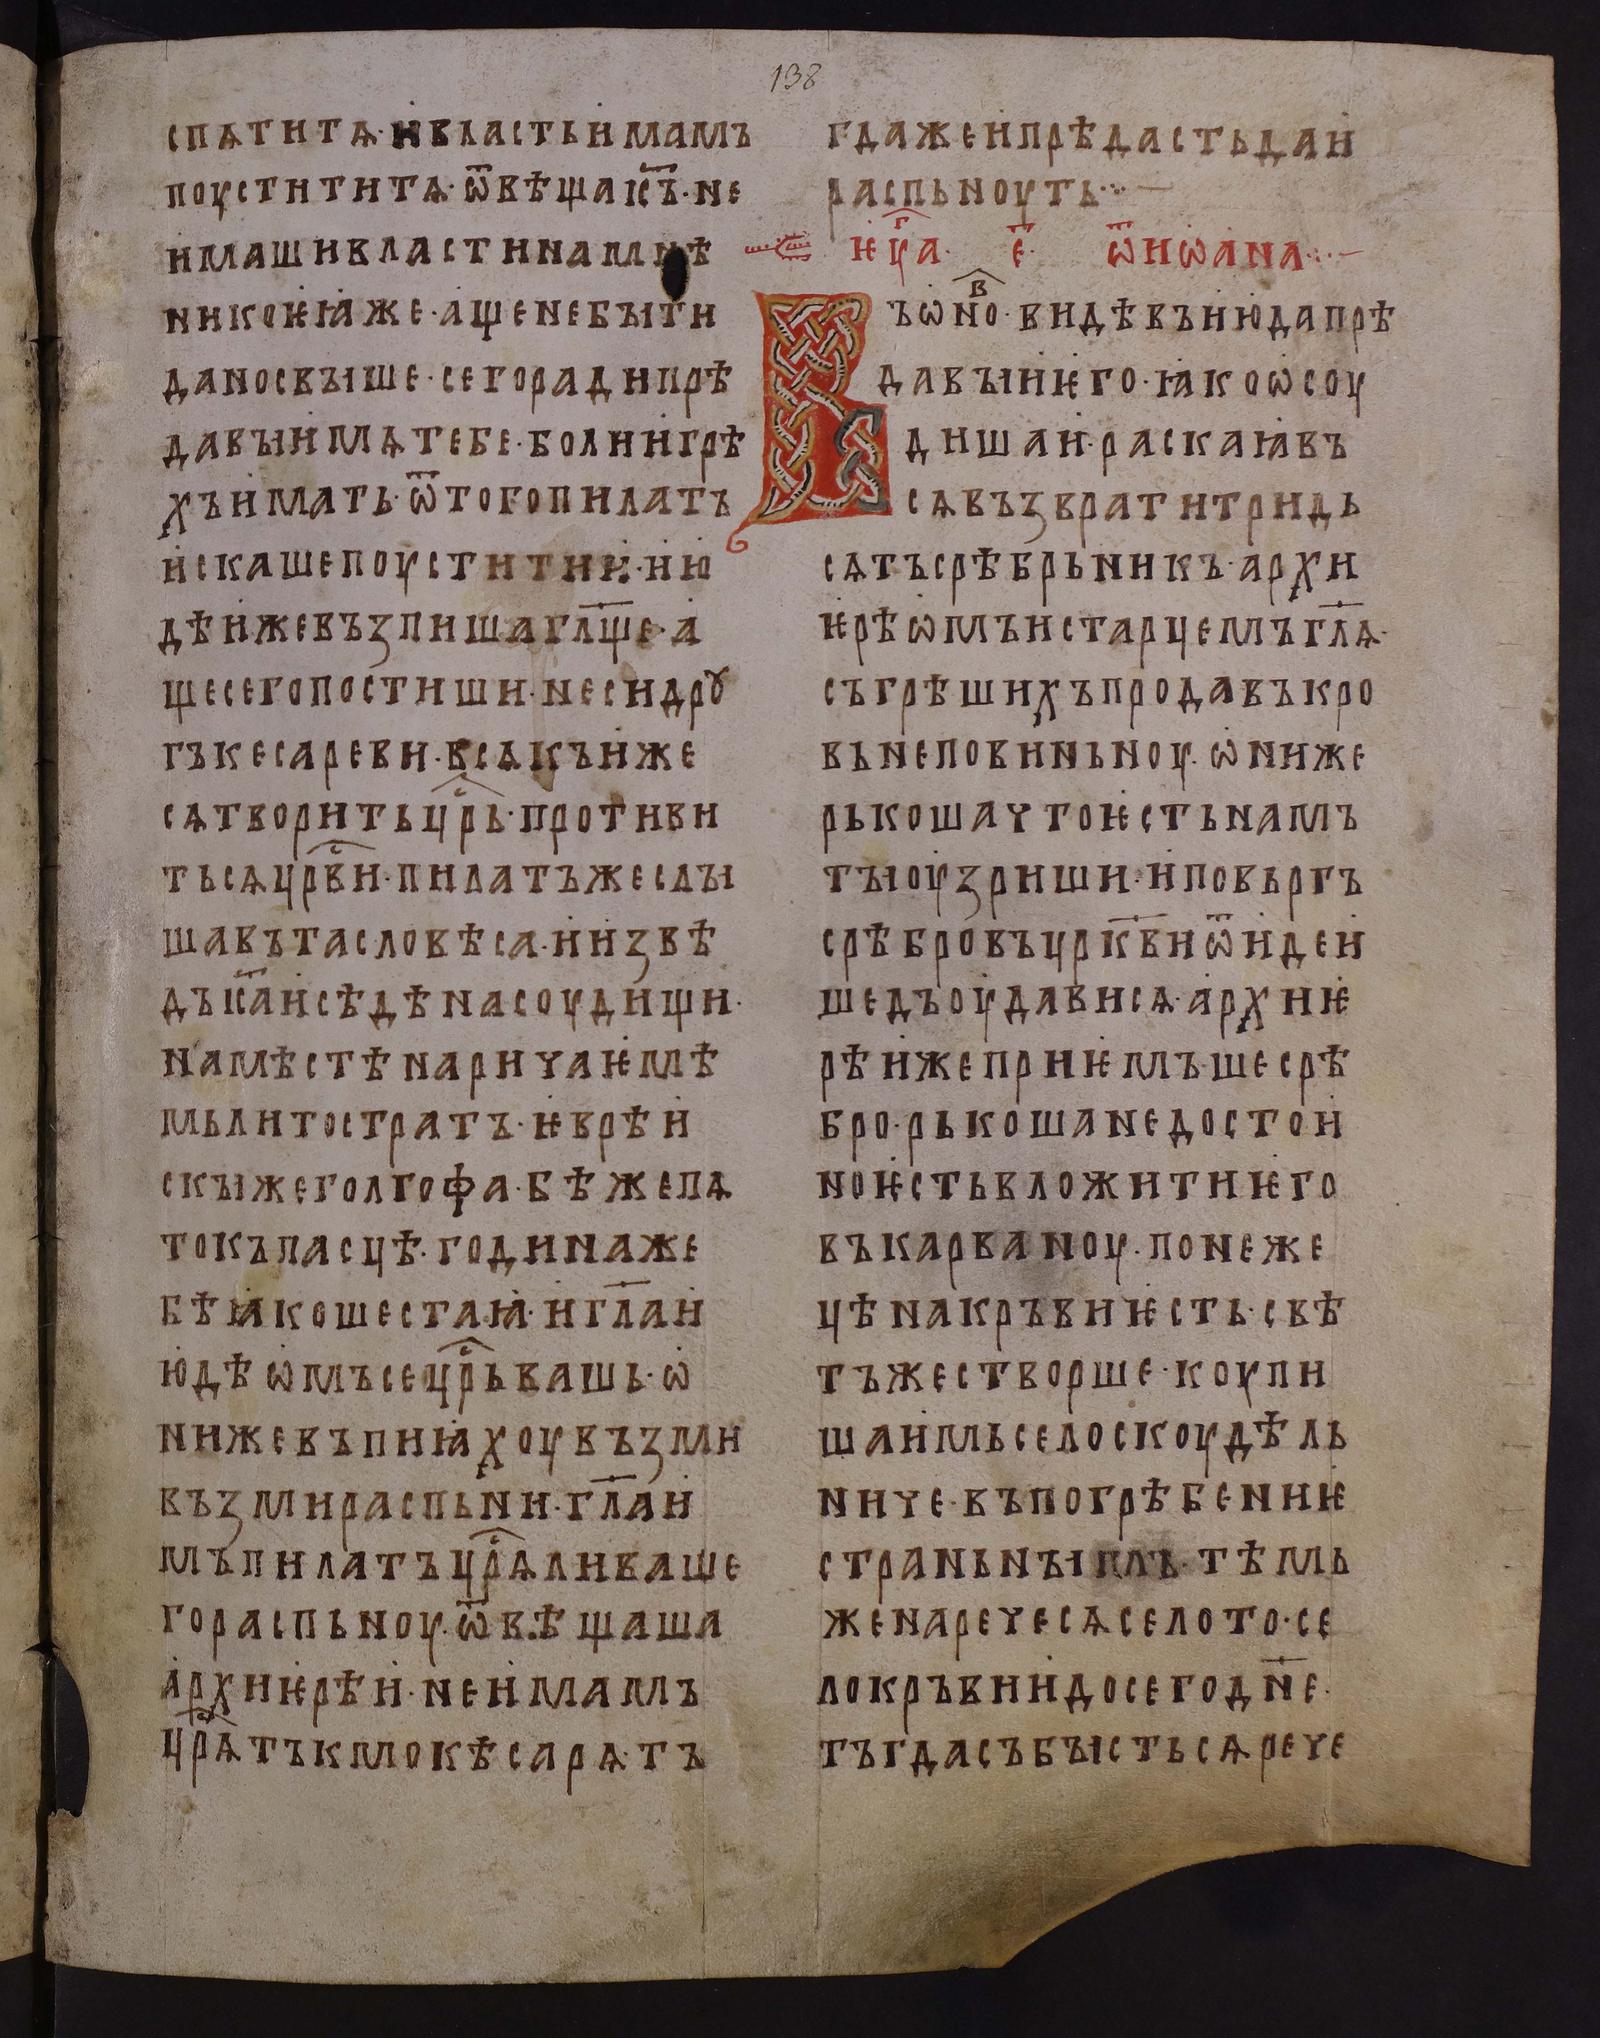 138
спѧтити тѧ· и власть имамъ
поустити тѧ· ѿвѣща і҃съ· не
имаши власти на мнѣ
никоѥꙗже· аще не бꙑ ти
дано съвꙑше· сего ради прѣ
давꙑи мѧ тебе· болии грѣ
хъ имать· ѿ того пилатъ
искаше поустити и· ию
дѣи же възпиша гл҃ще· а
ще сего постиши· нѣси дрꙋ
гъ кесареви· всѧкъ иже
сѧ творить цр҃ь· противи
тьсѧ цр҃ви· пилатъ же слꙑ
шавъ та словѣса· и изве
дъ і҃са и сѣде на соудищи·
на мѣстѣ нарицаѥмѣ
мь литостратъ· ѥврѣи
скꙑ же голгофа· бѣ же пѧ
токъ пасцѣ· година же
бѣ ꙗко шестаꙗ· и гл҃а и
юдѣѡмъ се цр҃ь вашь· ѡ
ни же въпиꙗхоу възми
възми распьни· гл҃а и
мъ пилатъ цр҃ѧ ли ваше
го распьноу· ѿвѣщаша
архиѥрѣи· не имамъ
цр҃ѧ тъкмо кѣсарѧ· тъ
гда же и прѣдасть да и
распьноуть·
ѥѵ҃г҃а· е҃· ѿ иѡана·
Въ ѡно в҃· видѣвъ июда прѣ
давꙑи ѥго· ꙗко ѡсоу
диша и· раскаꙗвъ
сѧ възврати тридь
сѧтъ срѣбрьникъ· архи
ѥрѣѡмъ и старцемъ гл҃ѧ·
съгрѣшихъ продавъ кро
вь неповиньноу· ѡни же
рькоша ѵто ѥсть намъ
тꙑ оузриши· и повьргъ
срѣбро въ црк҃ви ѿиде и
шедъ оудависѧ· архиѥ
рѣи же приѥмъше срѣ
бро· рькоша недостои
но ѥсть вложити ѥго
въ карваноу· понеже
цѣна кръви ѥсть· съвѣ
тъ же створше· коупи
ша имь село скоудѣль
ниѵе· въ погрѣбениѥ
страньнꙑимъ· тѣмь
же нареѵе сѧ село то· се
ло кръви и до сего дн҃е·
тъгда събꙑсть сѧ реѵе